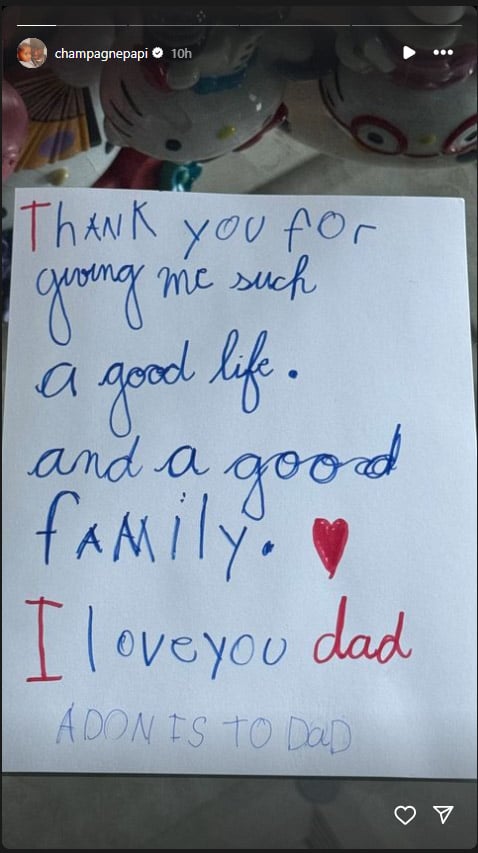 champagnepapi 10h
ThANK you for
giving me such
a good life.
and a good
fAMily.
I love you dad
ADONIS TO DaD